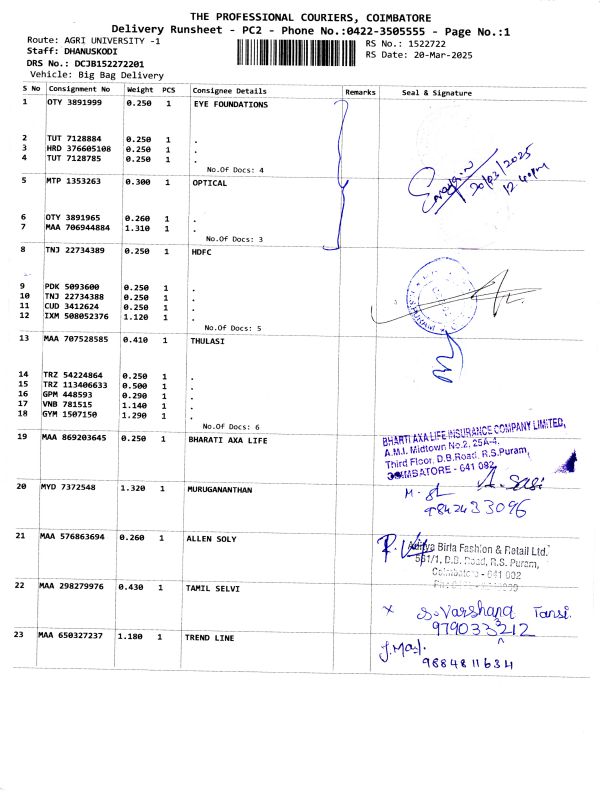 THE PROFESSIONAL COURIERS, COIMBATORE
Delivery Runsheet - PC2 - Phone No.:0422-3505555 - Page No.:1
Route: AGRI UNIVERSITY -1 RS No.: 1522722
Staff: DHANUSKODI RS Date: 20-Mar-2025
DRS No.: DCJB152272201
Vehicle: Big Bag Delivery
S No Consignment No Weight PCS Consignee Details Remarks Seal & Signature
1 OTY 3891999 0.250 1 EYE FOUNDATIONS
2 TUT 7128884 0.250 1 .
3 HRD 376605108 0.250 1 .
4 TUT 7128785 0.250 1 .
No.Of Docs: 4
20/03/2025
12.40pm
5 MTP 1353263 0.300 1 OPTICAL
6 OTY 3891965 0.260 1 .
7 MAA 706944884 1.310 1 .
No.Of Docs: 3
8 TNJ 22734389 0.250 1 HDFC
9 PDK 5093600 0.250 1 .
10 TNJ 22734388 0.250 1 .
11 CUD 3412624 0.250 1 .
12 IXM 508052376 1.120 1 .
No.Of Docs: 5
13 MAA 707528585 0.410 1 THULASI
14 TRZ 54224864 0.250 1 .
15 TRZ 113406633 0.500 1 .
16 GPM 448593 0.290 1 .
17 VNB 781515 1.140 1 .
18 GYM 1507150 1.290 1 .
No.Of Docs: 6
19 MAA 869203645 0.250 1 BHARATI AXA LIFE
BHARTI AXA LIFE INSURANCE COMPANY LIMITED,
A.M.I. Midtown No.2, 25A-4,
Third Floor, D.B.Road, R.S.Puram,
COIMBATORE - 641 002
A. Sasi
20 MYD 7372548 1.320 1 MURUGANANTHAN
9842433096
21 MAA 576863694 0.260 1 ALLEN SOLY
Aditya Birla Fashion & Retail Ltd.
581/1, D.B. Road, R.S. Puram,
Coimbatore - 641 002
22 MAA 298279976 0.430 1 TAMIL SELVI
x S.Varshana Tansi.
23 MAA 650327237 1.180 1 TREND LINE
9884811634